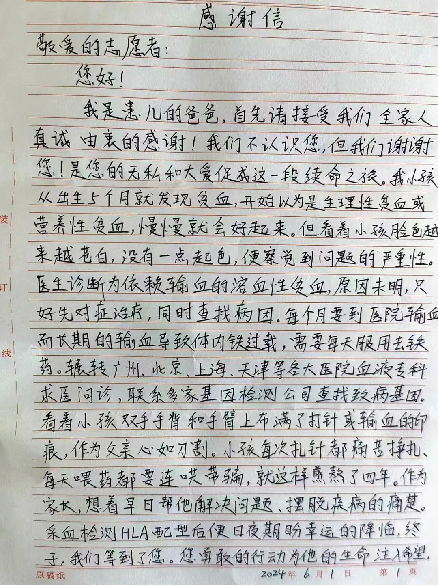 感谢信
敬爱的志愿者：
您好！
我是患儿的爸爸，首先请接受我们全家人
真诚由衷的感谢！我们不认识您，但我们谢谢
您！是您的无私和大爱促成这一段续命之旅。我小孩
从出生5个月就发现贫血，开始以为是生理性贫血或
营养性贫血，慢慢就会好起来。但看着小孩脸色越
来越苍白，没有一点起色，便察觉到问题的严重性。
医生诊断为依赖输血的溶血性贫血，原因未明，只
好先对症治疗，同时查找病因。每个月要到医院输血
而长期的输血导致体内铁过载，需要每天服用去铁
药。辗转广州、北京、上海、天津等各大医院血液专科
求医问诊，联系多家基因检测公司查找致病基因。
看着小孩双手手背和手臂上布满了打针或输血的印
痕，作为父亲心如刀割。小孩每次扎针都痛苦挣扎、
每天喂药都要连哄带骗，就这样煎熬了四年。作为
家长，想着早日帮他解决问题、摆脱疾病的痛楚。
采血检测HLA配型后便日夜期盼幸运的降临，终
于，我们等到了您。您勇敢的行动为他的生命注入希望，
装
订
线
2024年6月1日
第1页